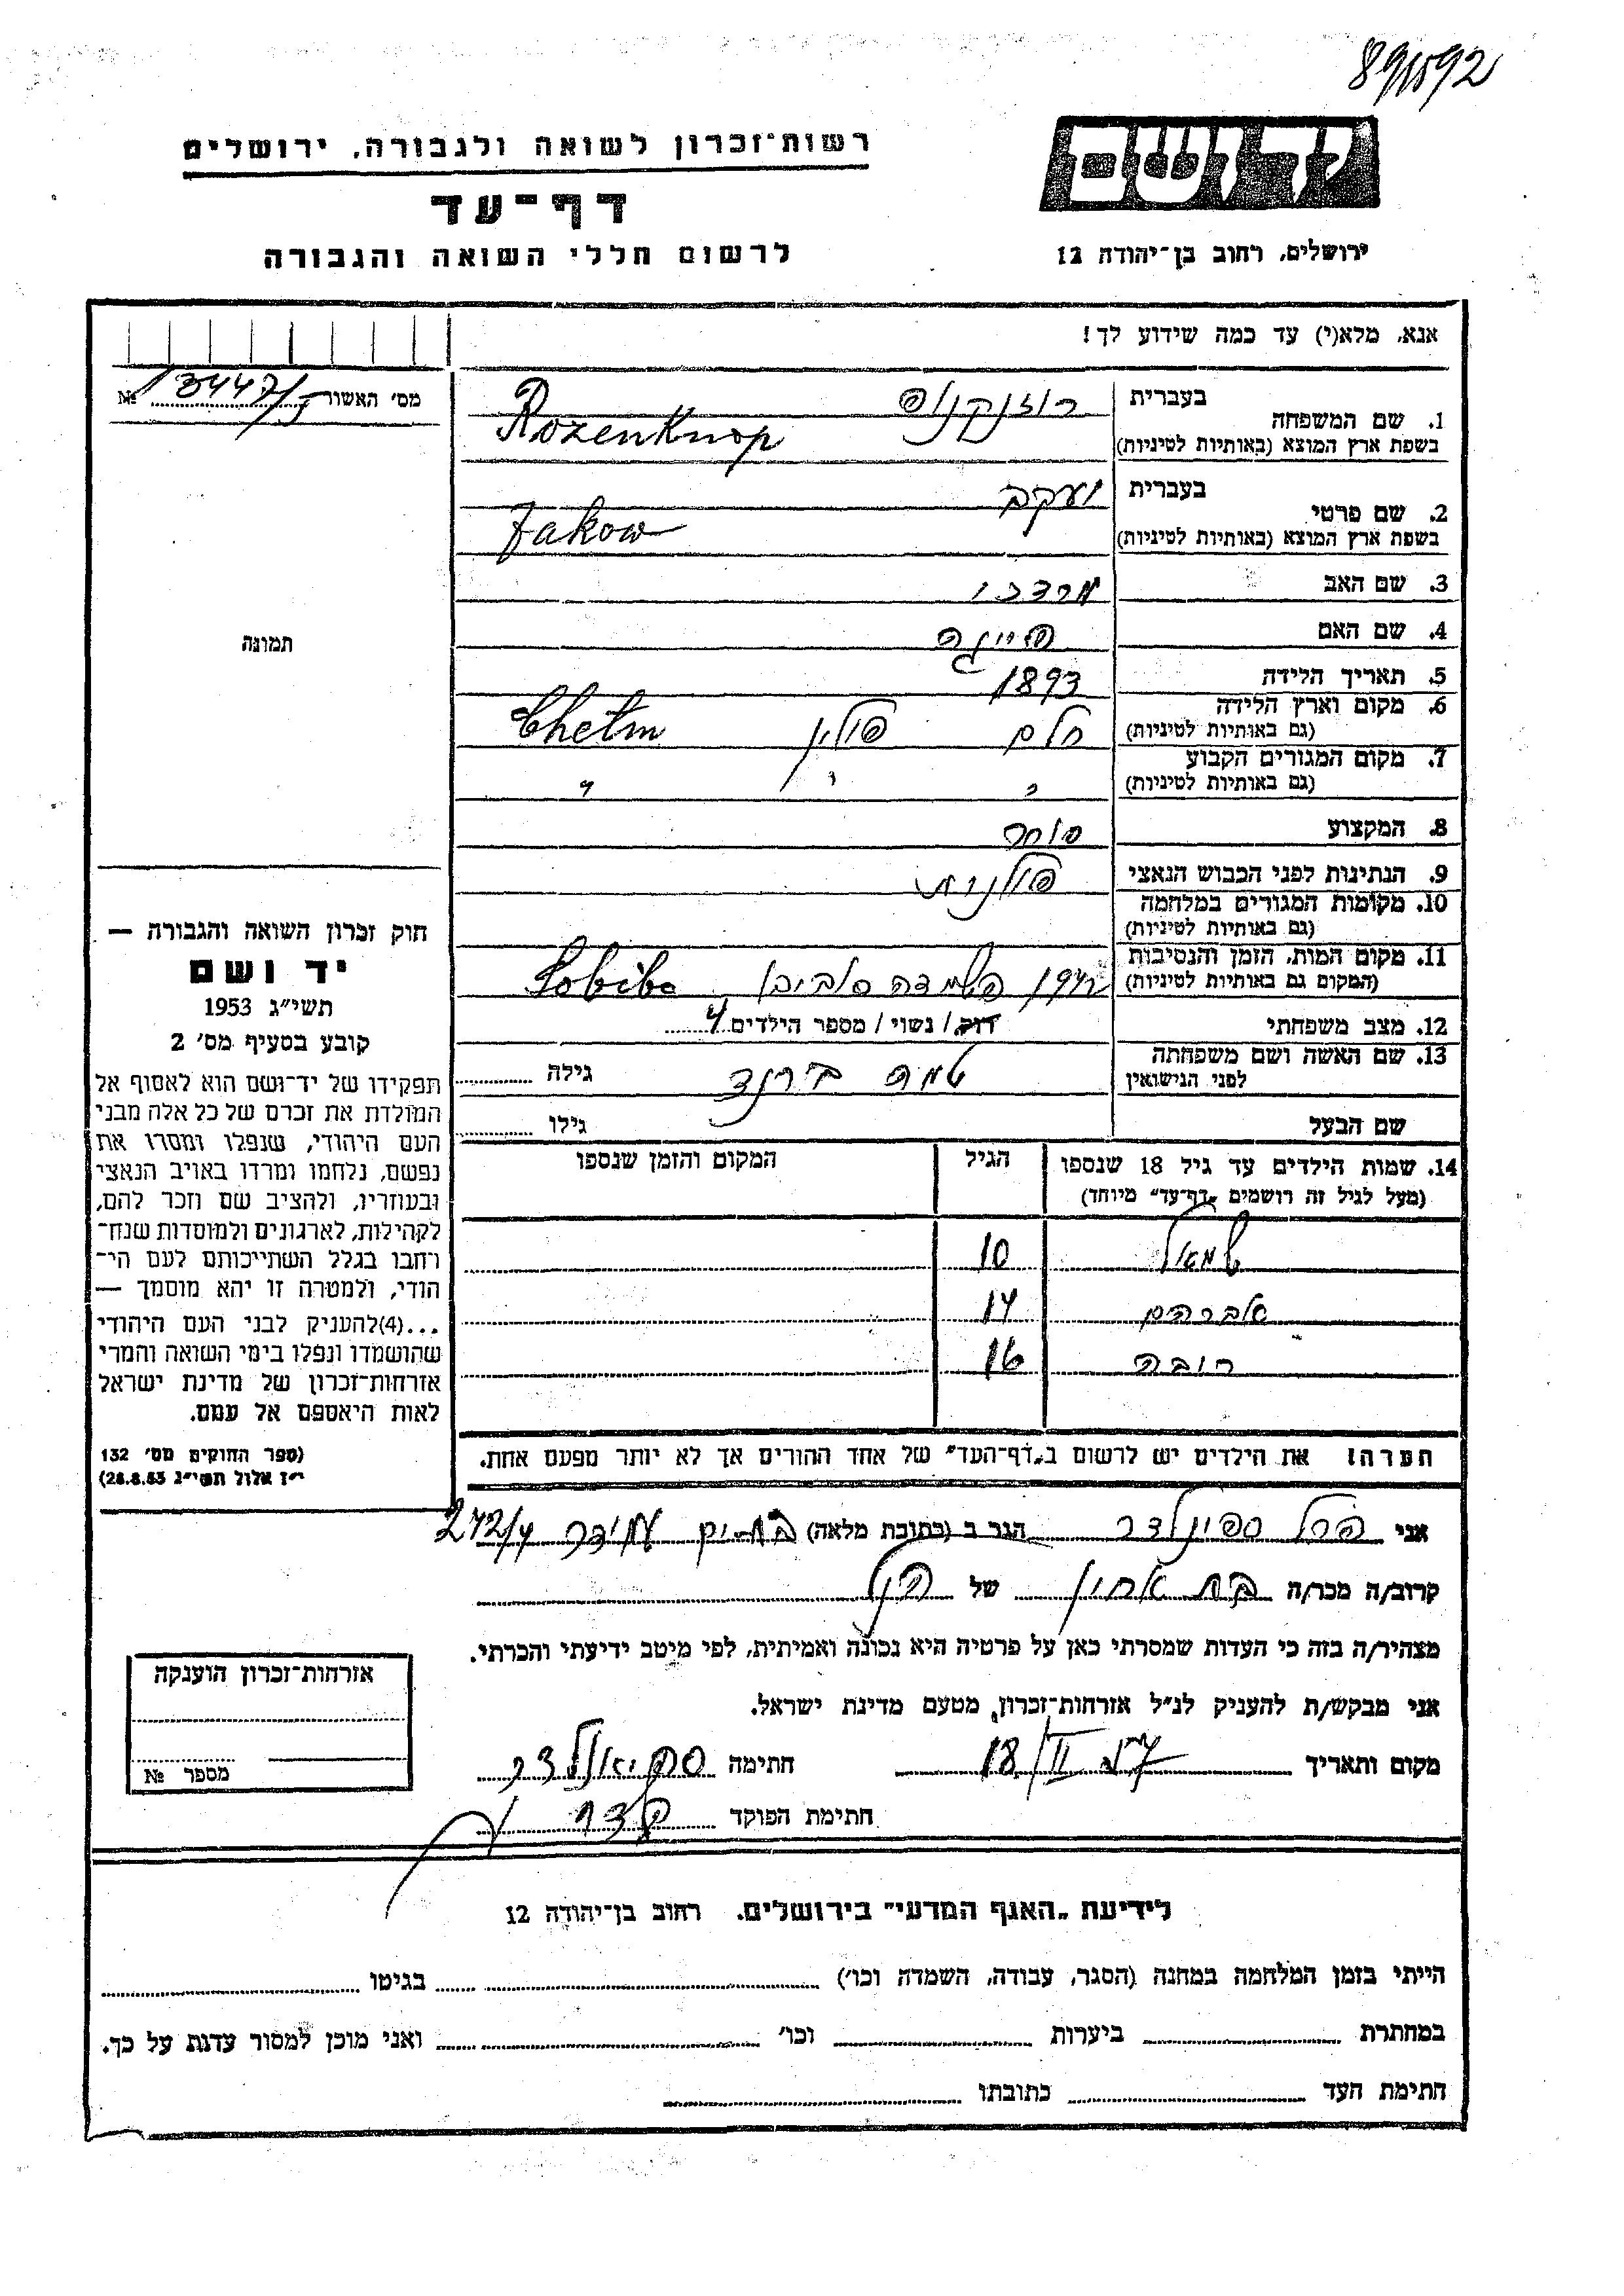 891592
רשות־זכרון לשואה ולגבורה, ירושלים
דף־עד
לרשום חללי השואה והגבורה
ידושם
ירושלים, רחוב בן־יהודה 12
אנא, מלא(י) עד כמה שידוע לך!
מס' האשור № 13447/5
1. שם המשפחה
בעברית רוזנקנופ
בשפת ארץ המוצא (באותיות לטיניות) Rozenknop
2. שם פרטי
בעברית יעקב
בשפת ארץ המוצא (באותיות לטיניות) Jakow
3. שם האב מרדכי
4. שם האם
5. תאריך הלידה 1893
6. מקום וארץ הלידה
(גם באותיות לטיניות) חלם פולין Chelm
7. מקום המגורים הקבוע
(גם באותיות לטיניות) " " "
8. המקצוע סוחר
9. הנתינות לפני הכבוש הנאצי פולנית
10. מקומות המגורים במלחמה
(גם באותיות לטיניות)
11. מקום המות, הזמן והנסיבות
(המקום גם באותיות לטיניות) השמדה סוביבו Sobibo
12. מצב משפחתי רווק / נשוי / מספר הילדים 4
13. שם האשה ושם משפחתה
לפני הנשואין ברנד גילה
שם הבעל גילו
14. שמות הילדים עד גיל 18 שנספו
(מעל לגיל זה רושמים "דף־עד" מיוחד)
הגיל
המקום והזמן שנספו
שמואל 10
אברהם 14
רובה 16
תמונה
חוק זכרון השואה והגבורה —
יד ושם
תשי"ג 1953
קובע בסעיף מס' 2
תפקידו של יד־ושם הוא לאסוף אל
המולדת את זכרם של כל אלה מבני
העם היהודי, שנפלו ומסרו את
נפשם, נלחמו ומרדו באויב הנאצי
ובעוזריו, ולהציב שם וזכר להם,
לקהילות, לארגונים ולמוסדות שנח־
רחבו בגלל השתייכותם לעם הי־
הודי, ולמטרה זו יהא מוסמך —
...(4)להעניק לבני העם היהודי
שהושמדו ונפלו בימי השואה והמרי
אזרחות־זכרון של מדינת ישראל
לאות היאספם אל עמם.
(ספר החוקים מס' 132
י"ז אלול תשי"ג 28.8.53)
הערה! את הילדים יש לרשום ב"דף־העד" של אחד ההורים אך לא יותר מפעם אחת.
אני פרל הגר ב (כתובת מלאה) עמידר 242/4
קרוב/ה מכר/ה בת אחיו של הנ"ל
מצהיר/ה בזה כי העדות שמסרתי כאן על פרטיה היא נכונה ואמיתית, לפי מיטב ידיעתי והכרתי.
אני מבקש/ת להעניק לנ"ל אזרחות־זכרון, מטעם מדינת ישראל.
מקום ותאריך 18/II חתימה
חתימת הפוקד
אזרחות־זכרון הוענקה
מספר №
לידיעת "האגף המדעי" בירושלים. רחוב בן־יהודה 12
הייתי בזמן המלחמה במחנה (הסגר, עבודה, השמדה וכו') בגיטו
במחתרת ביערות וכו' ואני מוכן למסור עדות על כך.
חתימת העד כתובתו